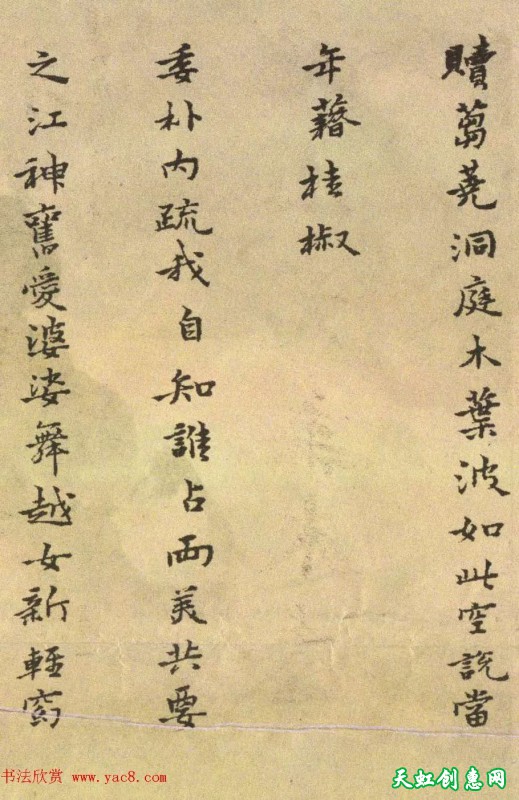 贖蒭荛洞庭木葉波如此空說當
年藉桂椒
委朴内疏我自知誰占両美共要
之江神舊愛婆娑舞越女新輕窈
书法欣赏 www.yac8.com
天虹创惠网